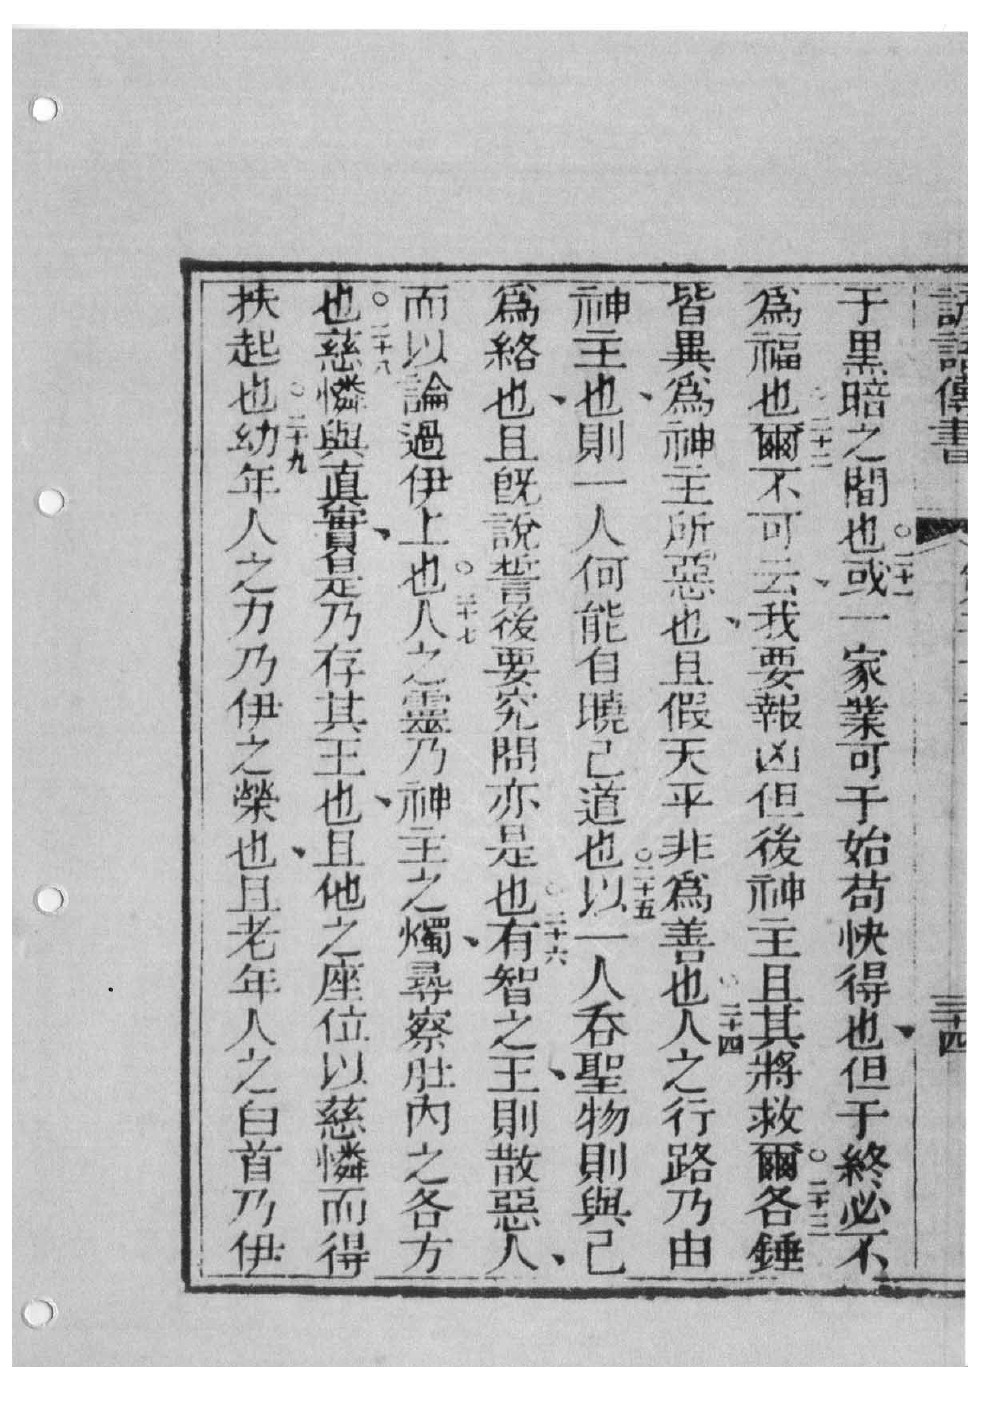 諺語傳書 三十四
于黑暗之間也○二十一或一家業可于始苟快得也、但于終必不
為福也○二十二爾不可云、我要報凶但後神主且其將救爾○二十三各錘
皆異為神主所惡也、且假天平非為善也○二十四人之行路乃由
神主也、則一人何能自曉己道也○二十五以一人吞聖物則與己
為絡也、且既說誓後要究問亦是也○二十六有智之王、則散惡人、
而以論過伊上也○二十七人之靈乃神主之燭、尋察肚內之各方
也○二十八慈憐與真實、是乃存其王也、且他之座位以慈憐而得
扶起也○二十九幼年人之力乃伊之榮也、且老年人之白首乃伊